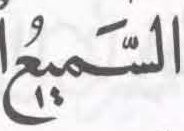 السَّمِيعُ
١٤